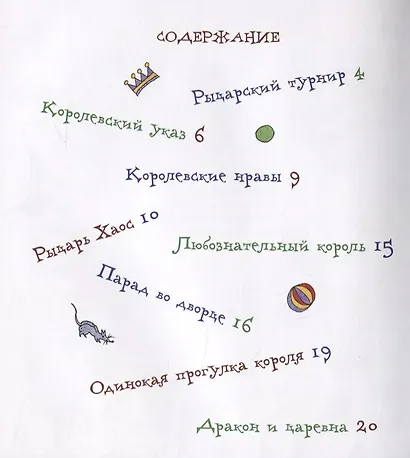 СОДЕРЖАНИЕ
Рыцарский турнир 4
Королевский указ 6
Королевские нравы 9
Рыцарь Хаос 10
Любознательный король 15
Парад во дворце 16
Одинокая прогулка короля 19
Дракон и царевна 20